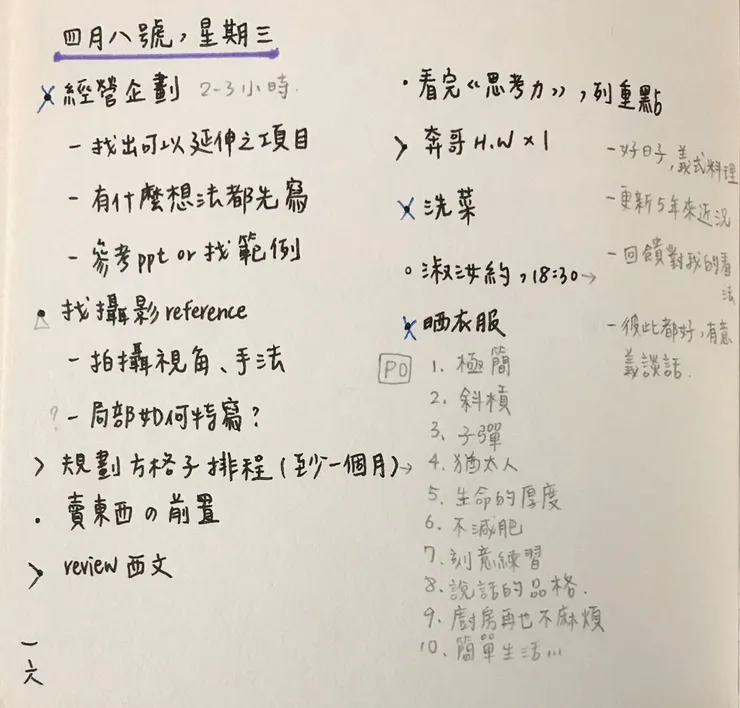 四月八號，星期三
經營企劃 2-3小時.
- 找出可以延伸之項目
- 有什麼想法都先寫
- 參考ppt or 找範例
找攝影reference
- 拍攝視角、手法
? - 局部如何特寫？
> 規劃方格子排程(至少一個月)→
· 賣東西の前置
> review 西文
一六
· 看完《思考力》，列重點
> 奔哥 H.W × 1
× 洗菜
○ 淑汝約，18:30→
- 好日子，義式料理
- 更新5年來近況
- 回饋對我的看法
- 彼此都好，有意義談話.
× 晒衣服
PO
1. 極簡
2. 斜槓
3. 子彈
4. 猶太人
5. 生命的厚度
6. 不減肥
7. 刻意練習
8. 說話的品格.
9. 廚房再也不麻煩
10. 簡單生活...